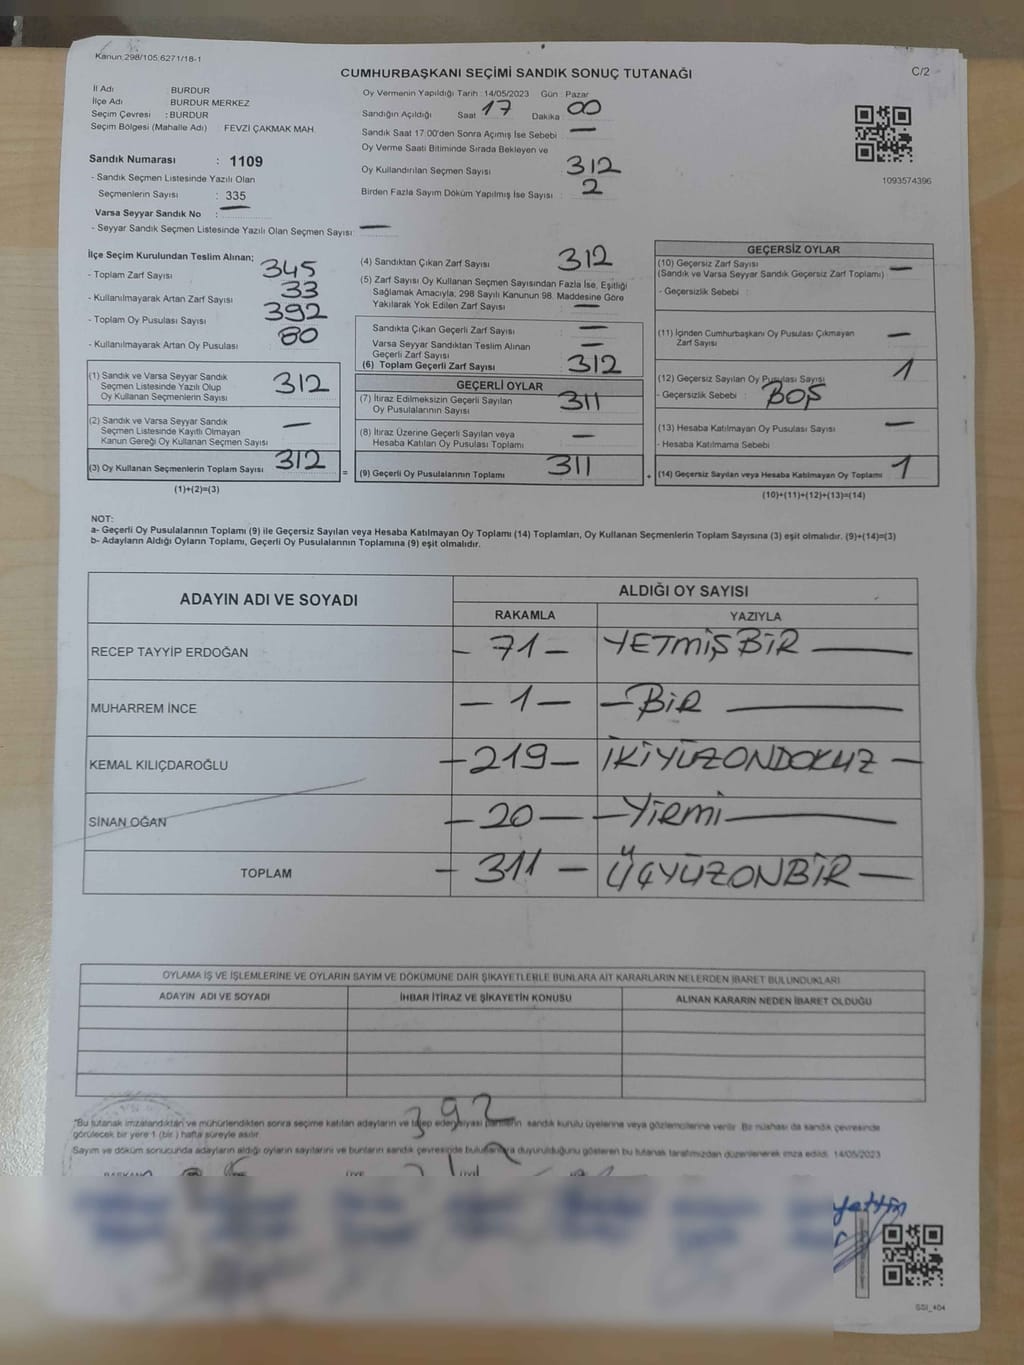 Kanun:298/105,6271/18-1
CUMHURBAŞKANI SEÇİMİ SANDIK SONUÇ TUTANAĞI
C/2
İl Adı : BURDUR
İlçe Adı : BURDUR MERKEZ
Seçim Çevresi : BURDUR
Seçim Bölgesi (Mahalle Adı) : FEVZİ ÇAKMAK MAH.
Sandık Numarası : 1109
- Sandık Seçmen Listesinde Yazılı Olan
Seçmenlerin Sayısı : 335
Varsa Seyyar Sandık No : —
- Seyyar Sandık Seçmen Listesinde Yazılı Olan Seçmen Sayısı: —
Oy Vermenin Yapıldığı Tarih : 14/05/2023 Gün : Pazar
Sandığın Açıldığı Saat 17 Dakika 00
Sandık Saat 17.00'den Sonra Açımış İse Sebebi —
Oy Verme Saati Bitiminde Sırada Bekleyen ve
Oy Kullandırılan Seçmen Sayısı : 312
Birden Fazla Sayım Döküm Yapılmış İse Sayısı : 2
1093574396
İlçe Seçim Kurulundan Teslim Alınan;
- Toplam Zarf Sayısı 345
- Kullanılmayarak Artan Zarf Sayısı 33
- Toplam Oy Pusulası Sayısı 392
- Kullanılmayarak Artan Oy Pusulası 80
(1) Sandık ve Varsa Seyyar Sandık
Seçmen Listesinde Yazılı Olup
Oy Kullanan Seçmenlerin Sayısı 312
(2) Sandık ve Varsa Seyyar Sandık
Seçmen Listesinde Kayıtlı Olmayan
Kanun Gereği Oy Kullanan Seçmen Sayısı —
(3) Oy Kullanan Seçmenlerin Toplam Sayısı 312
(1)+(2)=(3)
(4) Sandıktan Çıkan Zarf Sayısı 312
(5) Zarf Sayısı Oy Kullanan Seçmen Sayısından Fazla İse, Eşitliği
Sağlamak Amacıyla, 298 Sayılı Kanunun 98. Maddesine Göre
Yakılarak Yok Edilen Zarf Sayısı : —
Sandıkta Çıkan Geçerli Zarf Sayısı —
Varsa Seyyar Sandıktan Teslim Alınan
Geçerli Zarf Sayısı —
(6) Toplam Geçerli Zarf Sayısı 312
GEÇERLİ OYLAR
(7) İtiraz Edilmeksizin Geçerli Sayılan
Oy Pusulalarının Sayısı 311
(8) İtiraz Üzerine Geçerli Sayılan veya
Hesaba Katılan Oy Pusulası Toplamı —
= (9) Geçerli Oy Pusulalarının Toplamı 311 +
GEÇERSİZ OYLAR
(10) Geçersiz Zarf Sayısı
(Sandık ve Varsa Seyyar Sandık Geçersiz Zarf Toplamı) —
- Geçersizlik Sebebi :
(11) İçinden Cumhurbaşkanı Oy Pusulası Çıkmayan
Zarf Sayısı —
(12) Geçersiz Sayılan Oy Pusulası Sayısı 1
- Geçersizlik Sebebi : BOŞ
(13) Hesaba Katılmayan Oy Pusulası Sayısı —
- Hesaba Katılmama Sebebi
(14) Geçersiz Sayılan veya Hesaba Katılmayan Oy Toplamı 1
(10)+(11)+(12)+(13)=(14)
NOT:
a- Geçerli Oy Pusulalarının Toplamı (9) ile Geçersiz Sayılan veya Hesaba Katılmayan Oy Toplamı (14) Toplamları, Oy Kullanan Seçmenlerin Toplam Sayısına (3) eşit olmalıdır. (9)+(14)=(3)
b- Adayların Aldığı Oyların Toplamı, Geçerli Oy Pusulalarının Toplamına (9) eşit olmalıdır.
ADAYIN ADI VE SOYADI ALDIĞI OY SAYISI
RAKAMLA YAZIYLA
RECEP TAYYİP ERDOĞAN — 71 — YETMİŞBİR —
MUHARREM İNCE — 1 — — BİR —
KEMAL KILIÇDAROĞLU — 219 — İKİYÜZONDOKUZ —
SİNAN OĞAN — 20 — — YİRMİ —
TOPLAM — 311 — ÜÇYÜZONBİR —
OYLAMA İŞ VE İŞLEMLERİNE VE OYLARIN SAYIM VE DÖKÜMÜNE DAİR ŞİKAYETLERLE BUNLARA AİT KARARLARIN NELERDEN İBARET BULUNDUKLARI
ADAYIN ADI VE SOYADI İHBAR İTİRAZ VE ŞİKAYETİN KONUSU ALINAN KARARIN NEDEN İBARET OLDUĞU
392
*Bu tutanak imzalandıktan ve mühürlendikten sonra seçime katılan adayların ve talep eden siyasi partilerin sandık kurulu üyelerine veya gözlemcilerine verilir. Bir nüshası da sandık çevresinde
görülecek bir yere 1 (bir) hafta süreyle asılır.
Sayım ve döküm sonucunda adayların aldığı oyların sayılarını ve bunların sandık çevresinde bulunanlara duyurulduğunu gösteren bu tutanak tarafımızdan düzenlenerek imza edildi. 14/05/2023
SSI_404